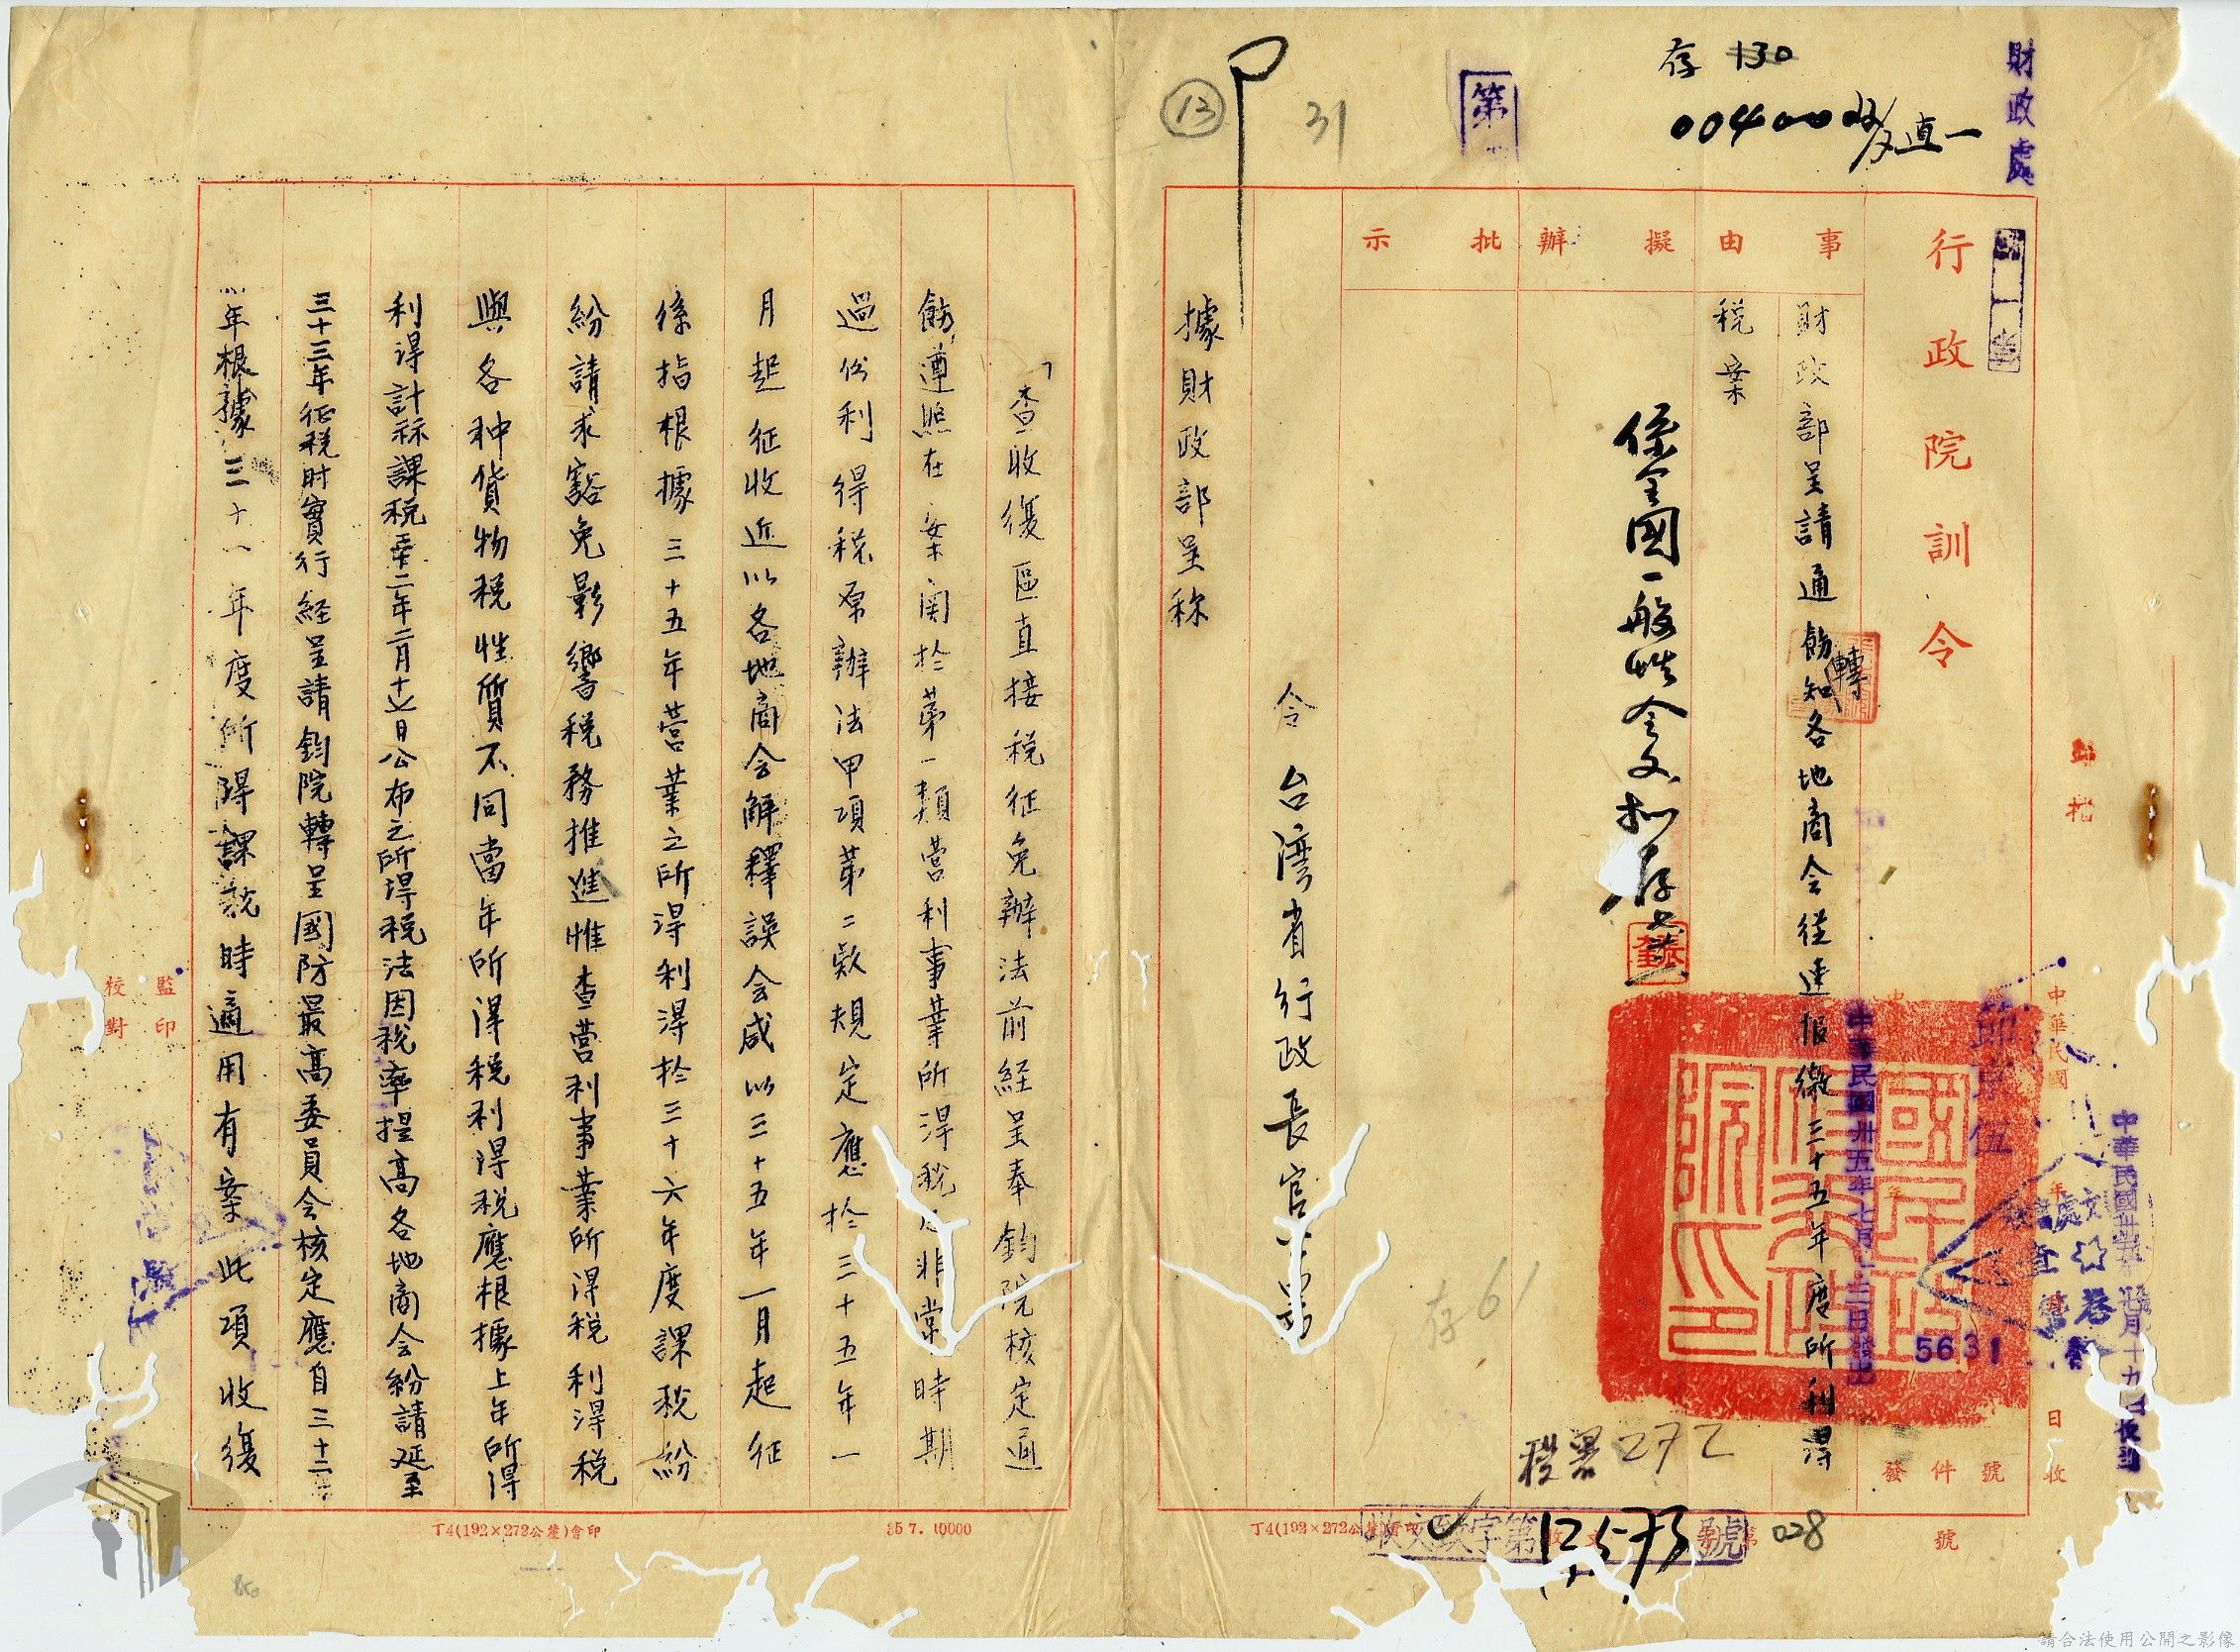 財政處
存 130
004
直一
第
31
13
行政院訓令
事由
擬辦
批示
財政部呈請通飭知各地商会從速報繳三十五年度所利得
轉
税案
係全國一般性令文擬存
令 台灣省行政長官
據財政部呈称
中華民國卅五年七月
日發出
節京伍
5631
中華民國
年
日收
發
件
號
號
歸檔
税署272
存61
收文致字第
號
12573
028
丁4(192×272公釐)會印
「查收復區直接税征免辦法前経呈奉鈞院核定通
飭遵照在案関於第一類营利事業所得税及非常時期
過份利得税原辦法甲項第二欵規定應於三十五年一
月起征收近以各地商会解釋誤会咸以三十五年一月起征
係指根據三十五年营業之所得利得於三十六年度課税紛
紛請求豁免影響税務推進惟查营利事業所得税利得税
與各种貨物税性質不同當年所得税利得税應根據上年所得
利得計祘課税卅二年二月十七日公布之所得税法因税率提高各地商会紛請延至
三十三年征税时實行経呈請鈞院轉呈國防最高委員会核定應自三十二
年根據三十一年度所得課税時適用有案此項收復
監印
校對
丁4(192×272公釐)會印
35 7. 10000
請合法使用公開之影像